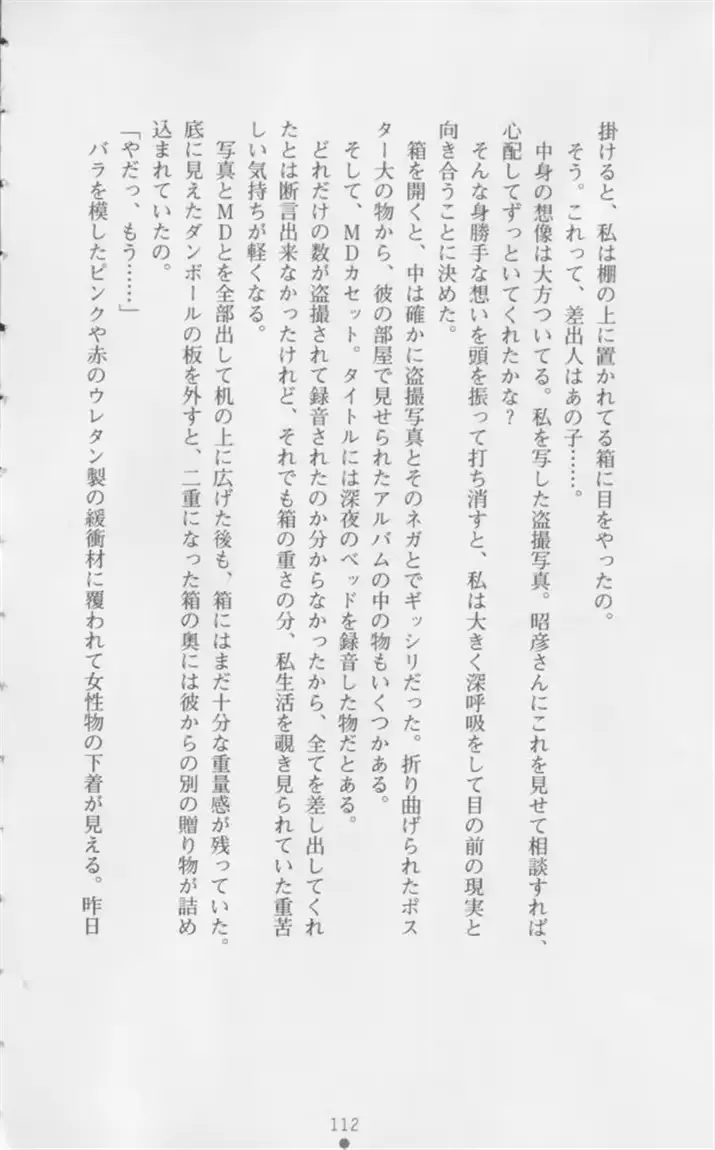 掛けると、私は棚の上に置かれてる箱に目をやったの。
そう。これって、差出人はあの子……。
中身の想像は大方ついてる。私を写した盗撮写真。昭彦さんにこれを見せて相談すれば、
心配してずっといてくれたかな？
そんな身勝手な想いを頭を振って打ち消すと、私は大きく深呼吸をして目の前の現実と
向き合うことに決めた。
箱を開くと、中は確かに盗撮写真とそのネガとでギッシリだった。折り曲げられたポス
ター大の物から、彼の部屋で見せられたアルバムの中の物もいくつかある。
そして、ＭＤカセット。タイトルには深夜のベッドを録音した物だとある。
どれだけの数が盗撮されて録音されたのか分からなかったから、全てを差し出してくれ
たとは断言出来なかったけれど、それでも箱の重さの分、私生活を覗き見られていた重苦
しい気持ちが軽くなる。
写真とＭＤとを全部出して机の上に広げた後も、箱にはまだ十分な重量感が残っていた。
底に見えたダンボールの板を外すと、二重になった箱の奥には彼からの別の贈り物が詰め
込まれていたの。
「やだっ、もう……」
バラを模したピンクや赤のウレタン製の緩衝材に覆われて女性物の下着が見える。昨日
112